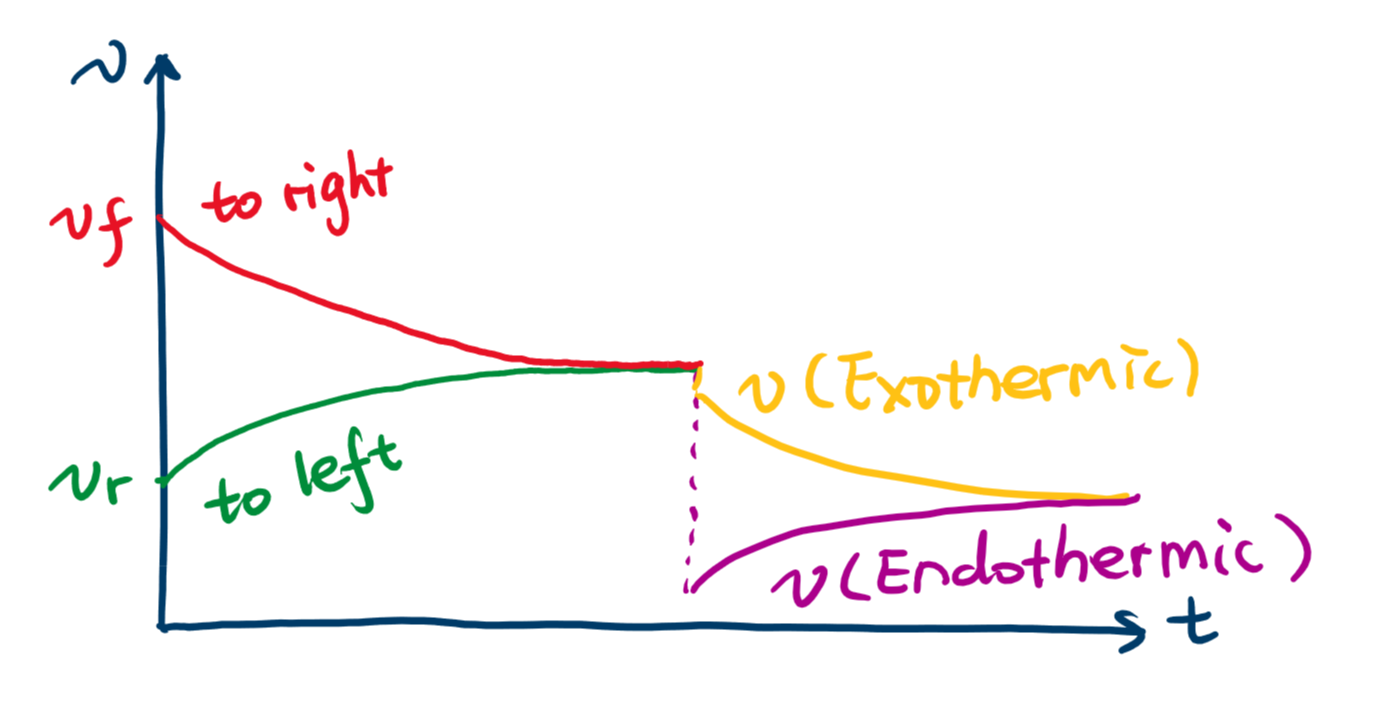 v
to right
vf
v (Exothermic)
to left
vr
v (Endothermic)
t